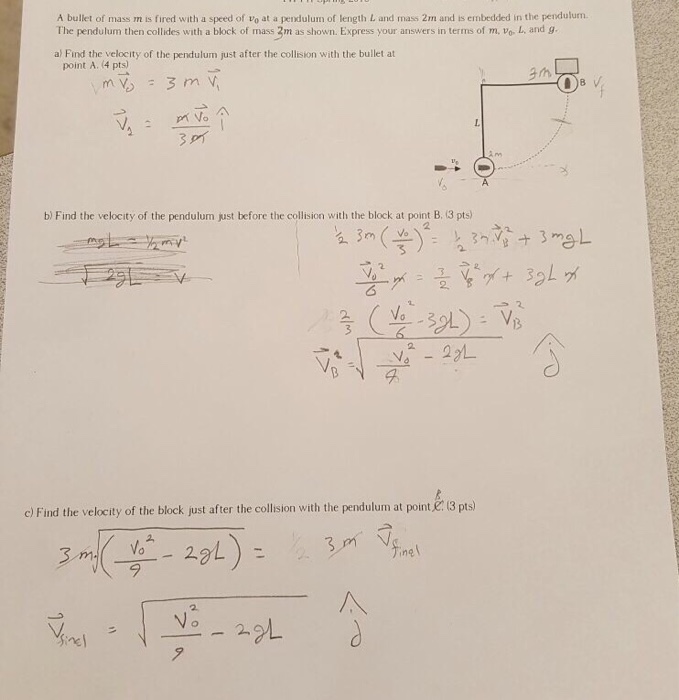 A bullet of mass m is fired with a speed of v₀ at a pendulum of length L and mass 2m and is embedded in the pendulum.
The pendulum then collides with a block of mass 3m as shown. Express your answers in terms of m, v₀, L, and g.
a) Find the velocity of the pendulum just after the collision with the bullet at
point A. (4 pts)
m v⃗₀ = 3 m v⃗₁
v⃗₁ = m v⃗₀ / 3m î
3m
B
Vf
L
2m
v₀
V₀
A
b) Find the velocity of the pendulum just before the collision with the block at point B. (3 pts)
mgL = ½mv²
√2gL = v
½ 3m (V₀/3)² = ½ 3m V⃗B² + 3mgL
V⃗₀²/6 m = 3/2 V⃗B² m + 3gL m
2/3 (V₀²/6 - 3gL) = V⃗B²
V⃗B² = √(V₀²/9 - 2gL) ĵ
c) Find the velocity of the block just after the collision with the pendulum at point B C. (3 pts)
3m √(V₀²/9 - 2gL) = 3m V⃗final
V⃗final = √(V₀²/9 - 2gL) ĵ